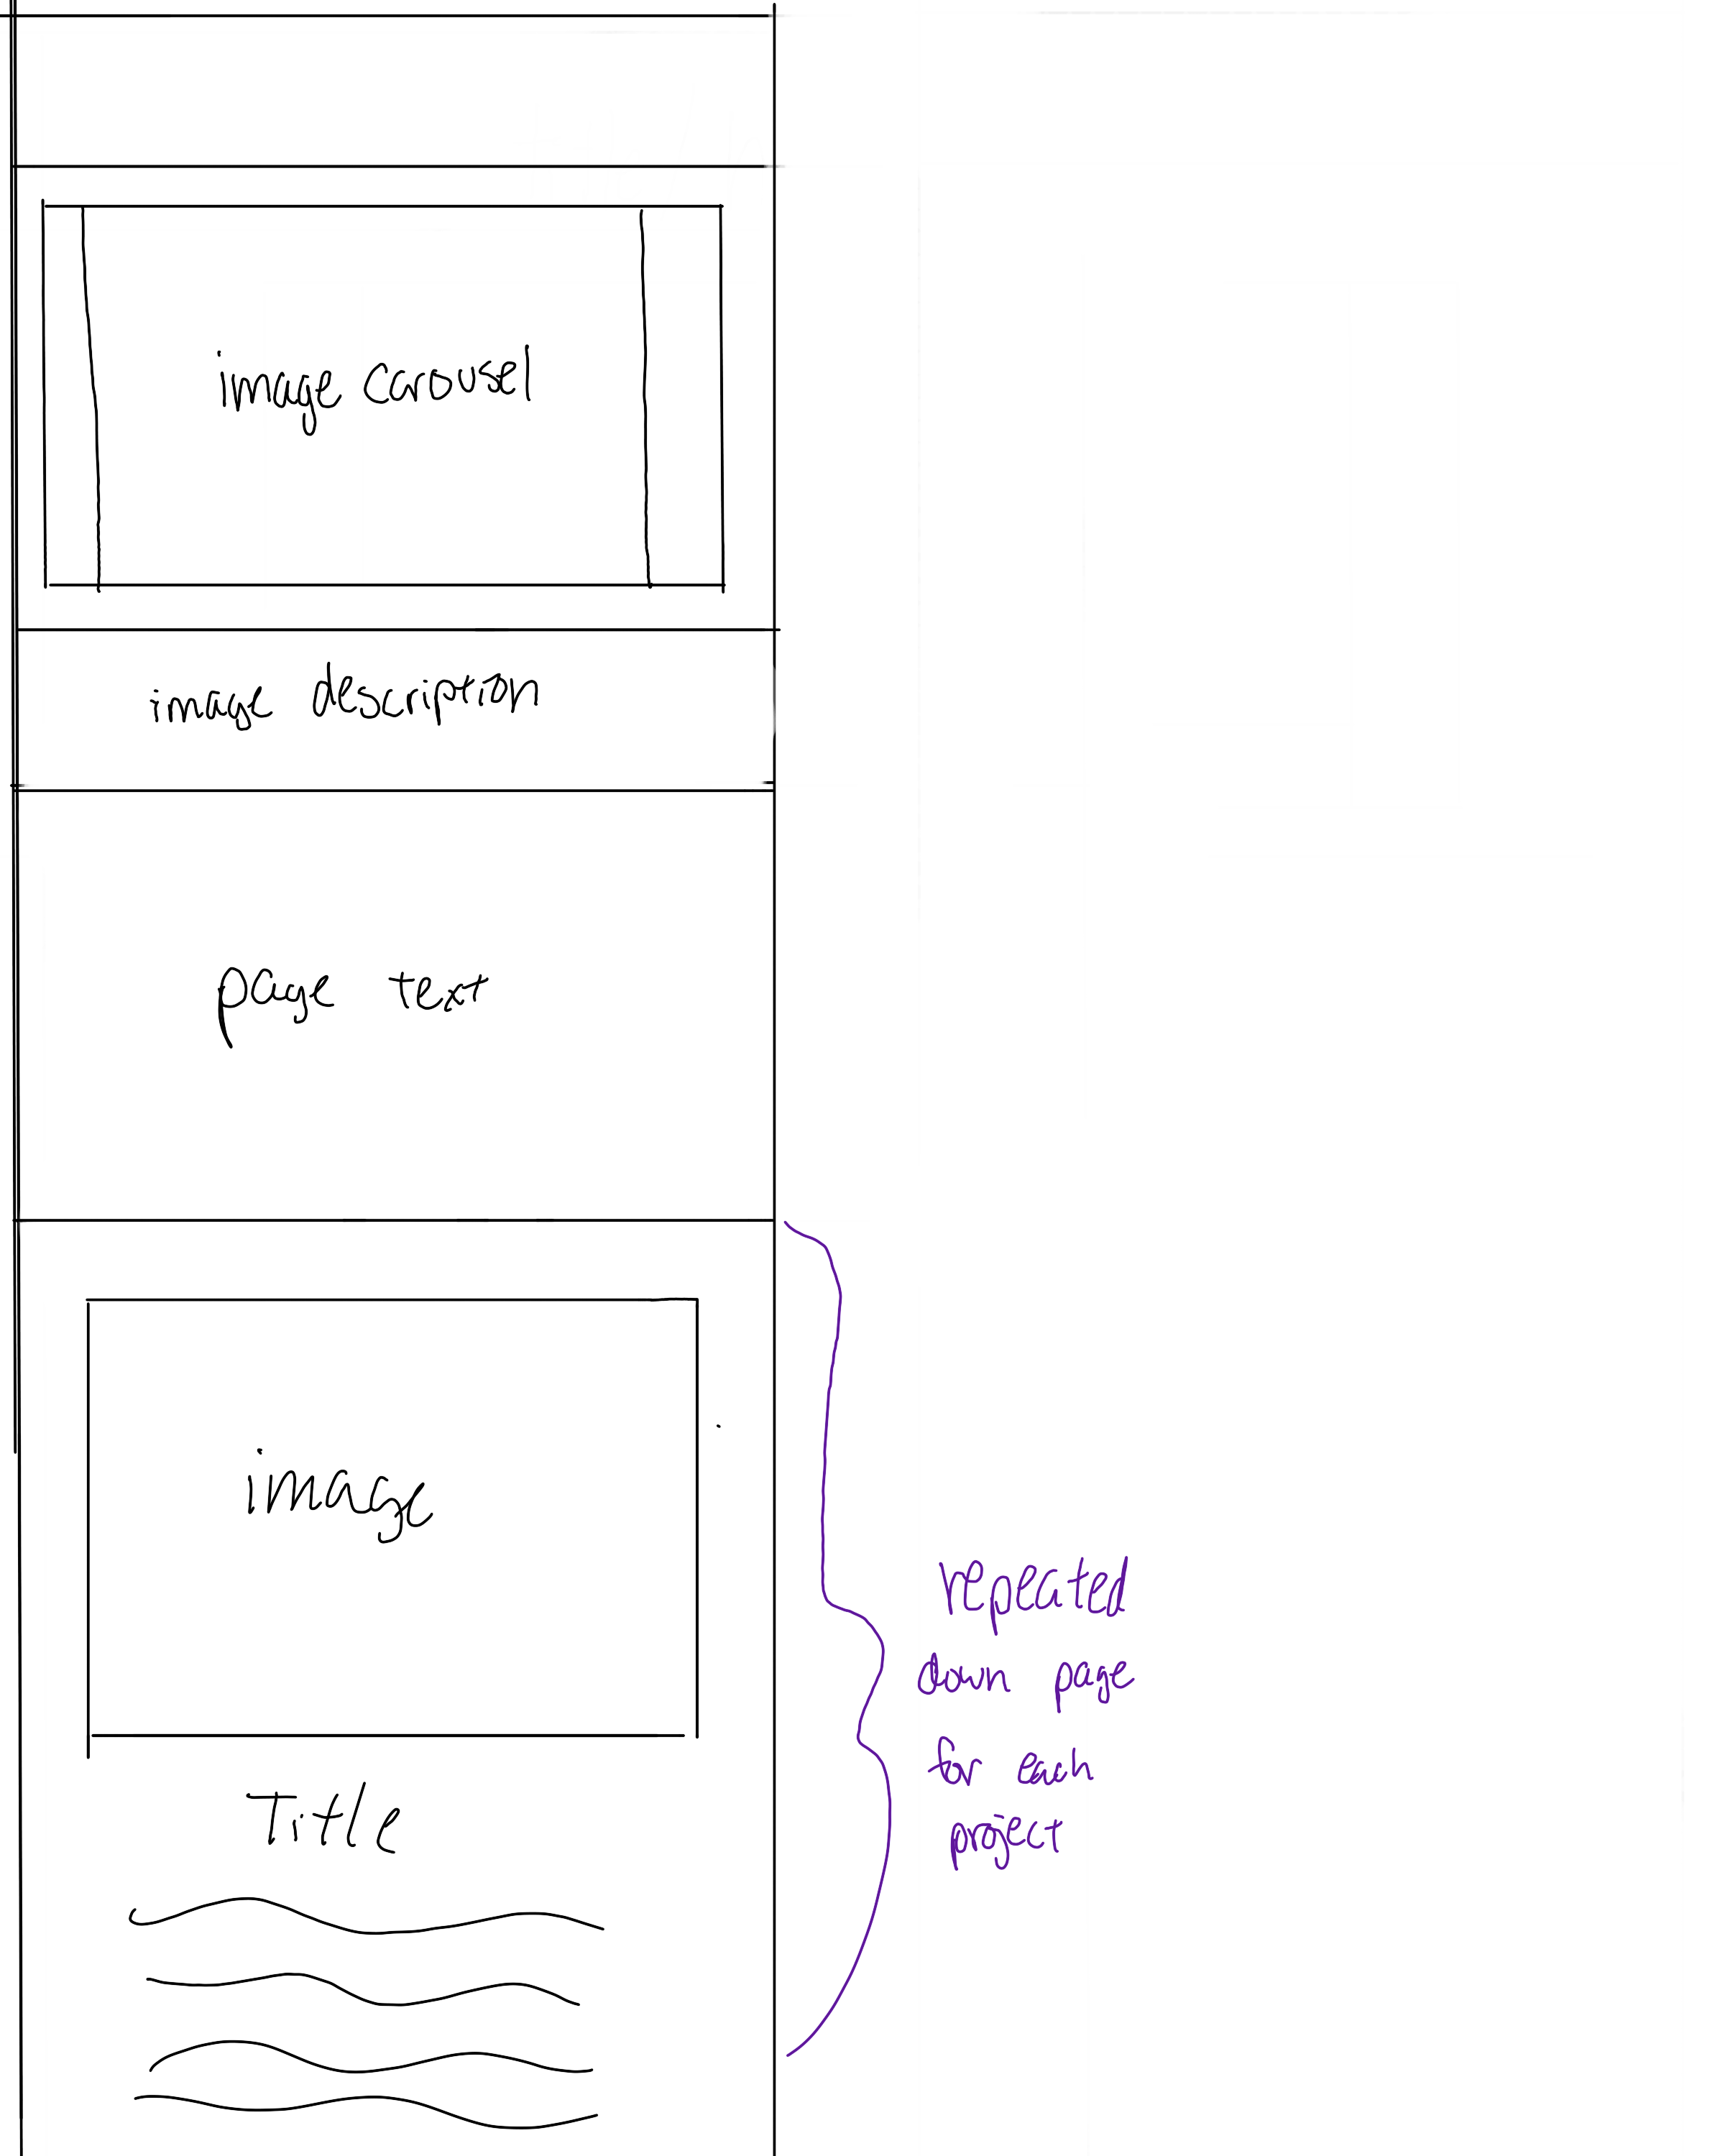 image carousel
image description
page text
image
Title
repeated
down page
for each
project